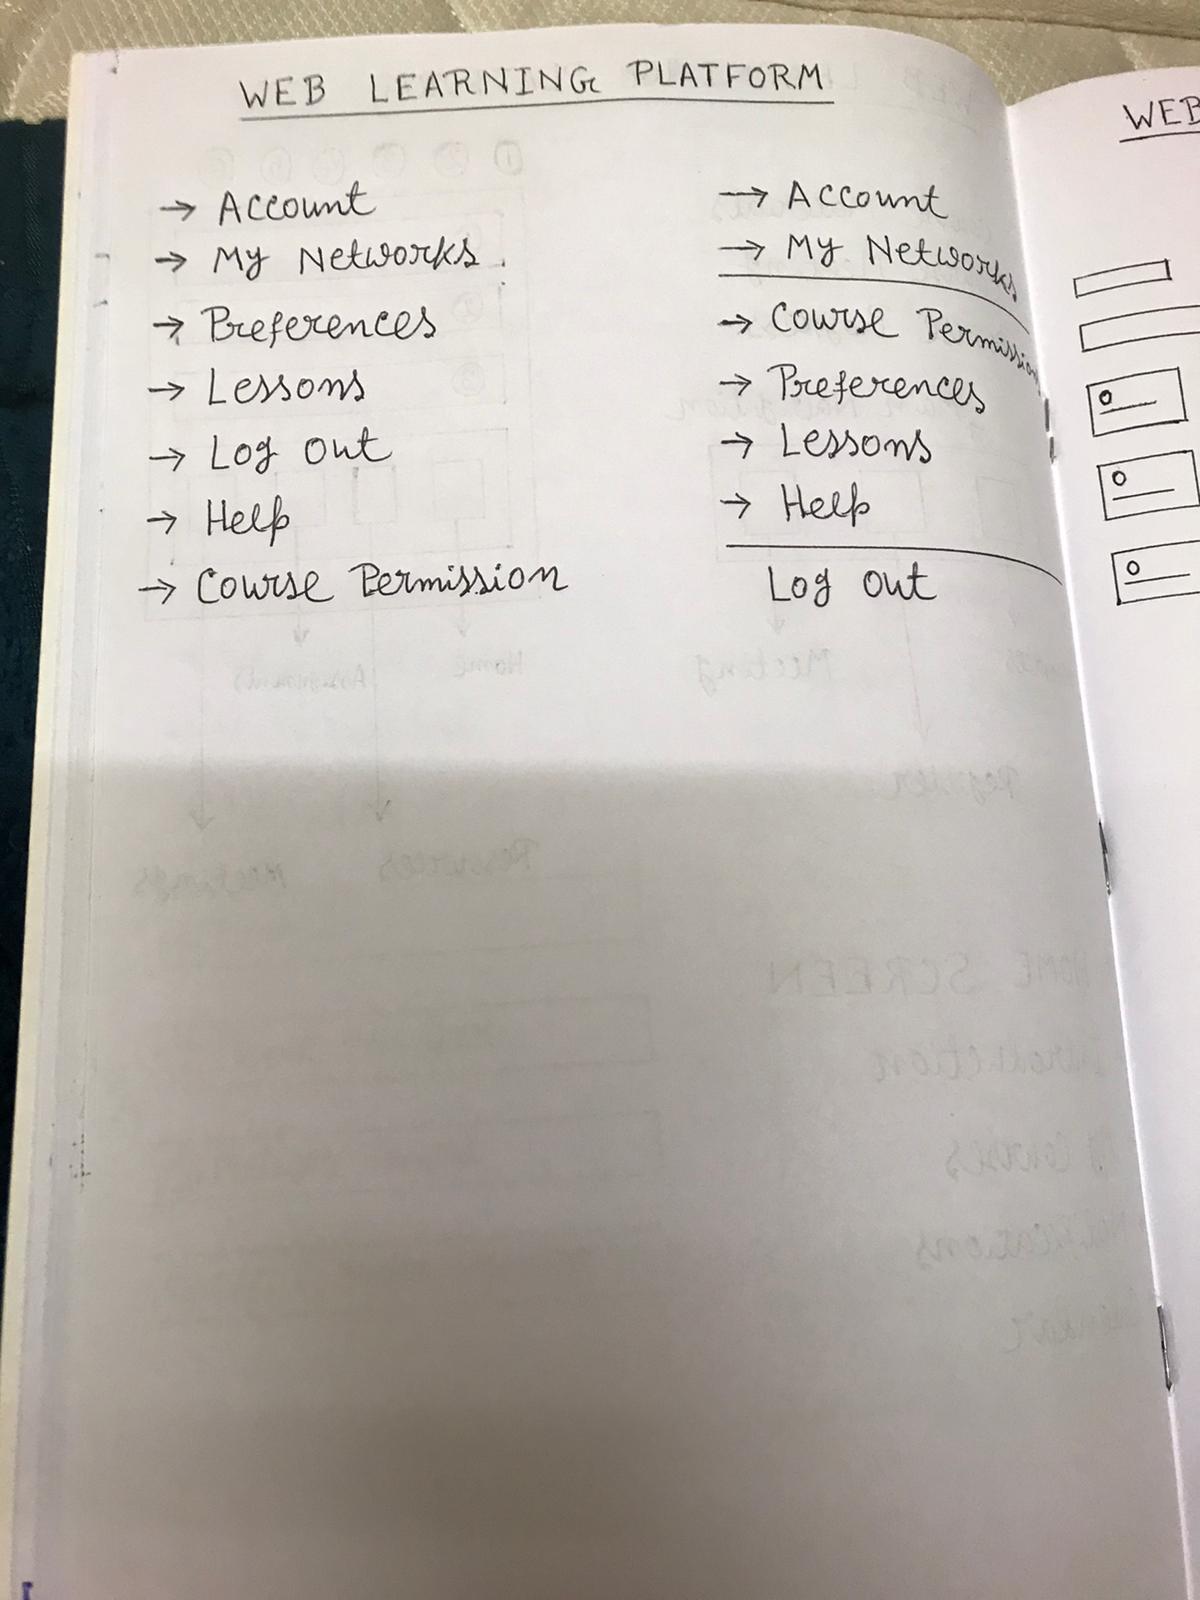 WEB LEARNING PLATFORM
→ Account
→ My Networks.
→ Preferences
→ Lessons
→ Log Out
→ Help
→ Course Permission
→ Account
→ My Networks
→ Course Permission
→ Preferences
→ Lessons
→ Help
Log Out
WEB